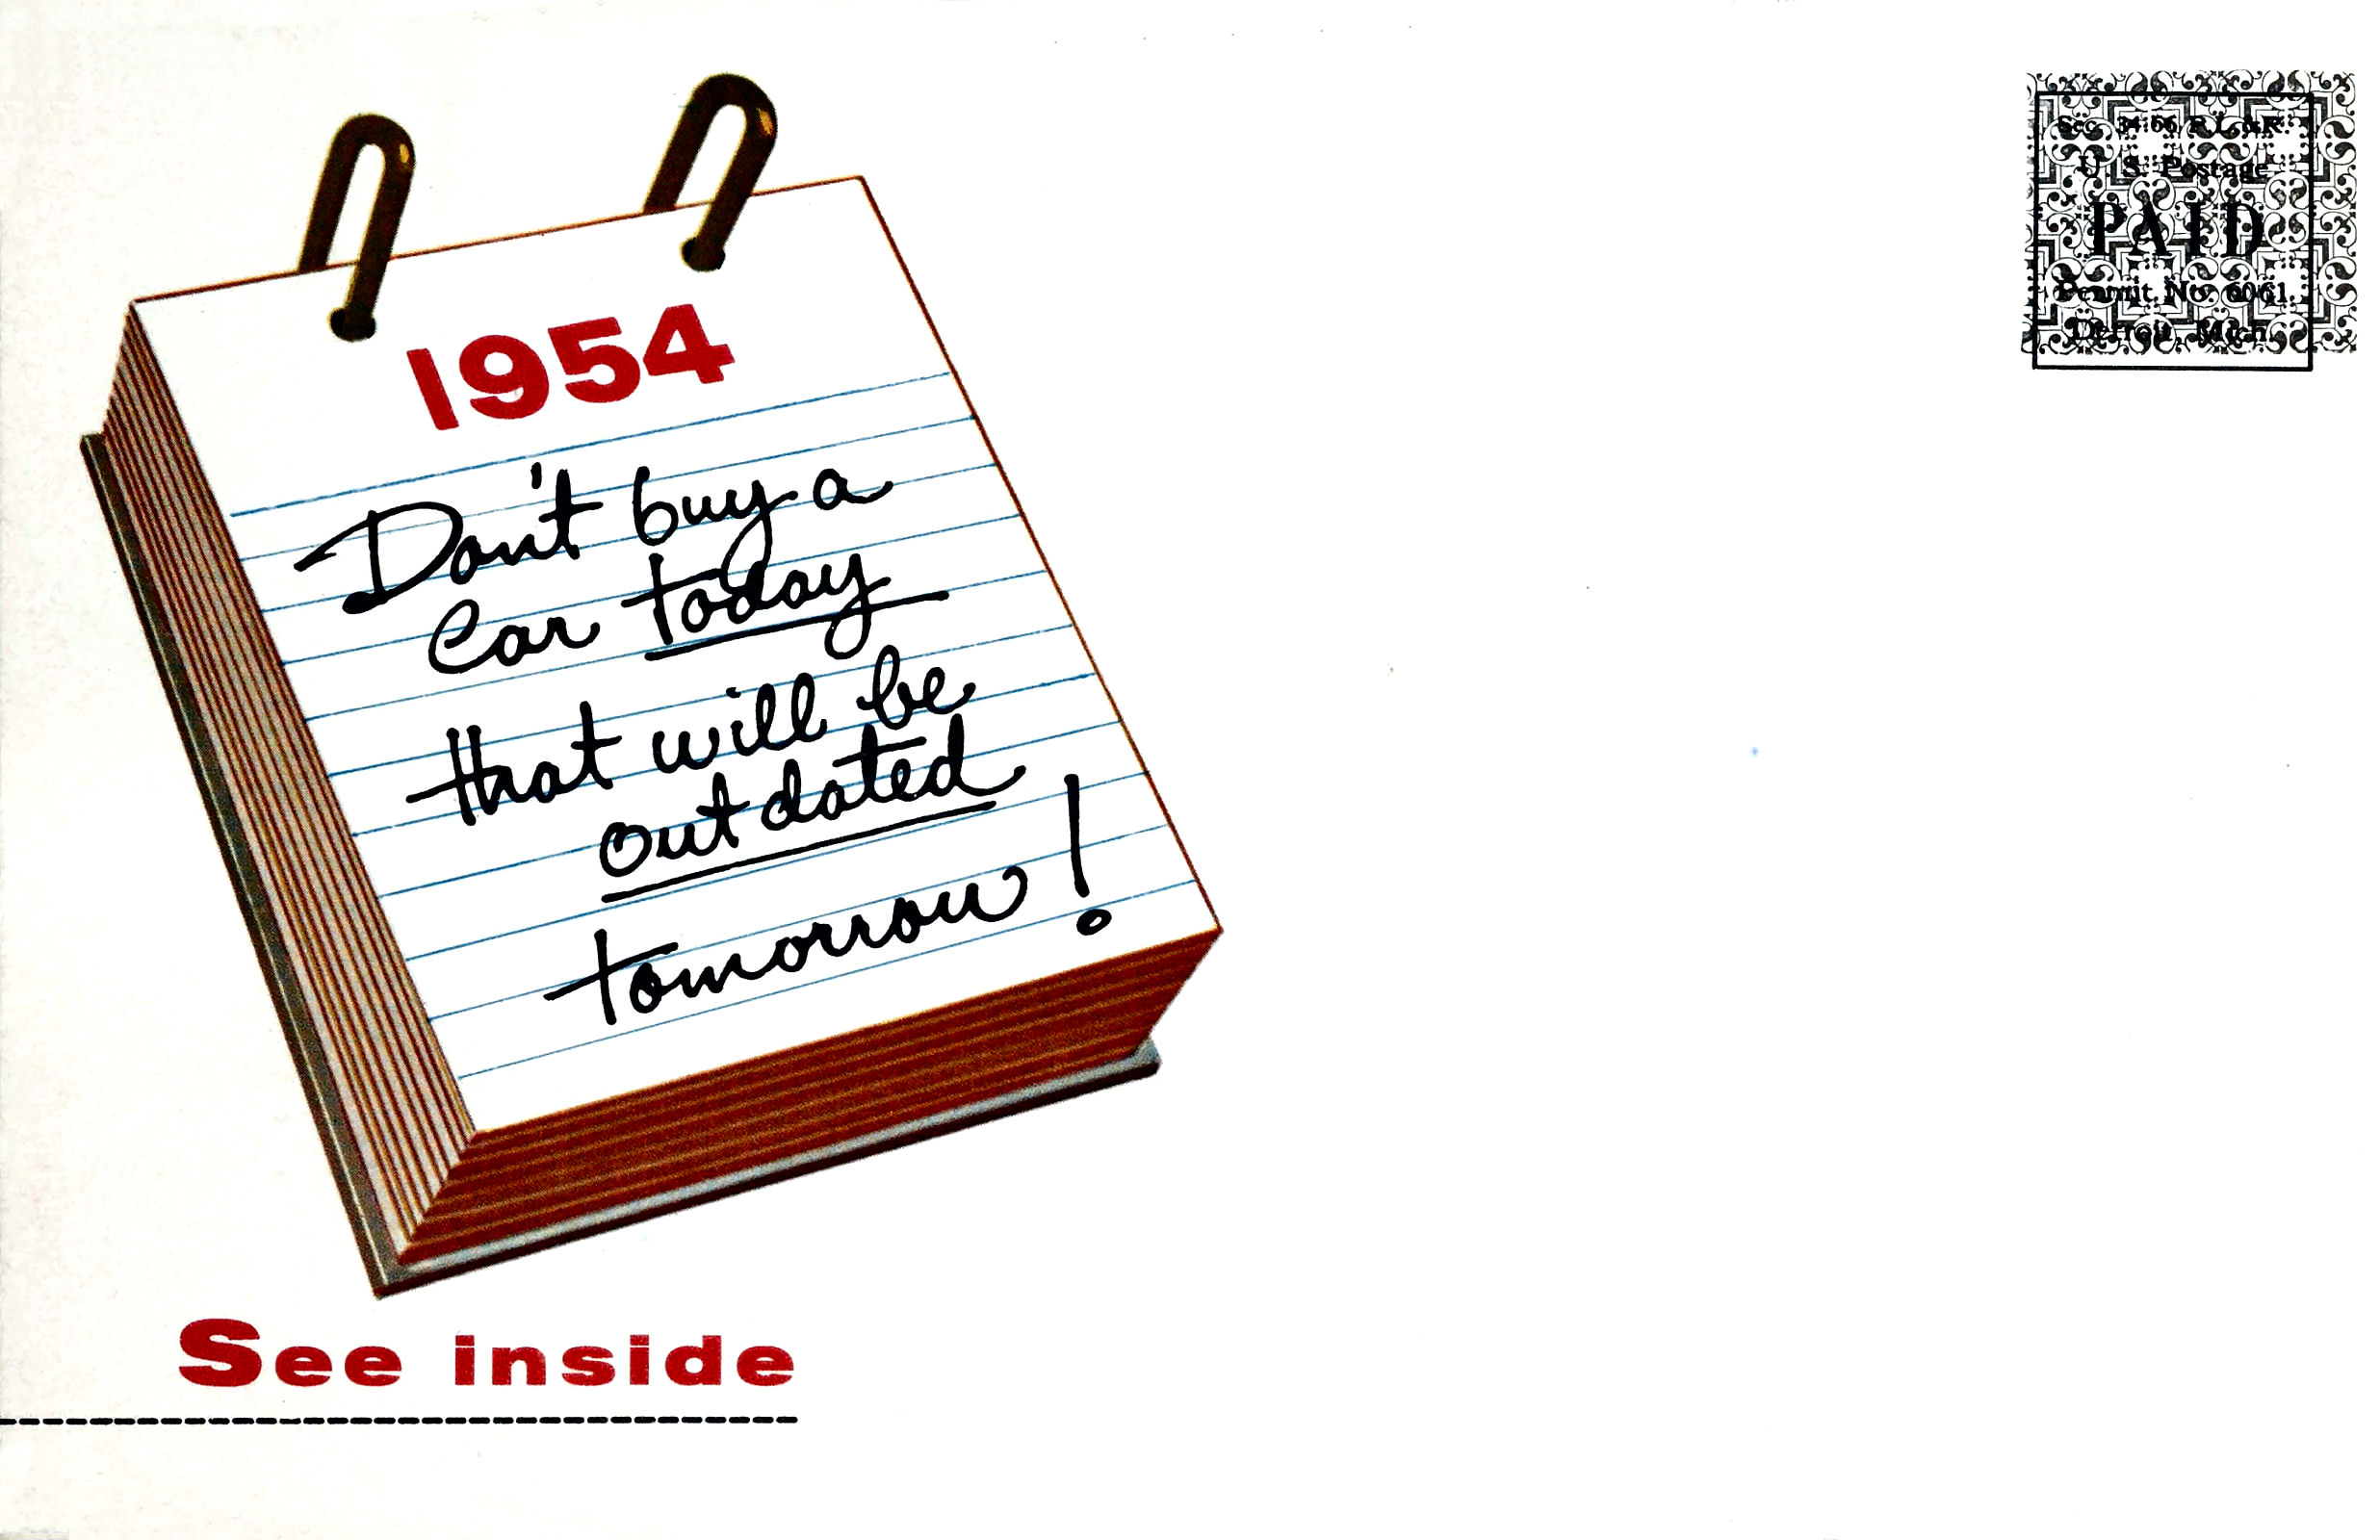 1954
Don't buy a
Car today
that will be
out dated
tomorrow!
See inside
Sec. 34.66 P.L.&R.
U. S. Postage
PAID
Permit No. 6061
Detroit, Mich.